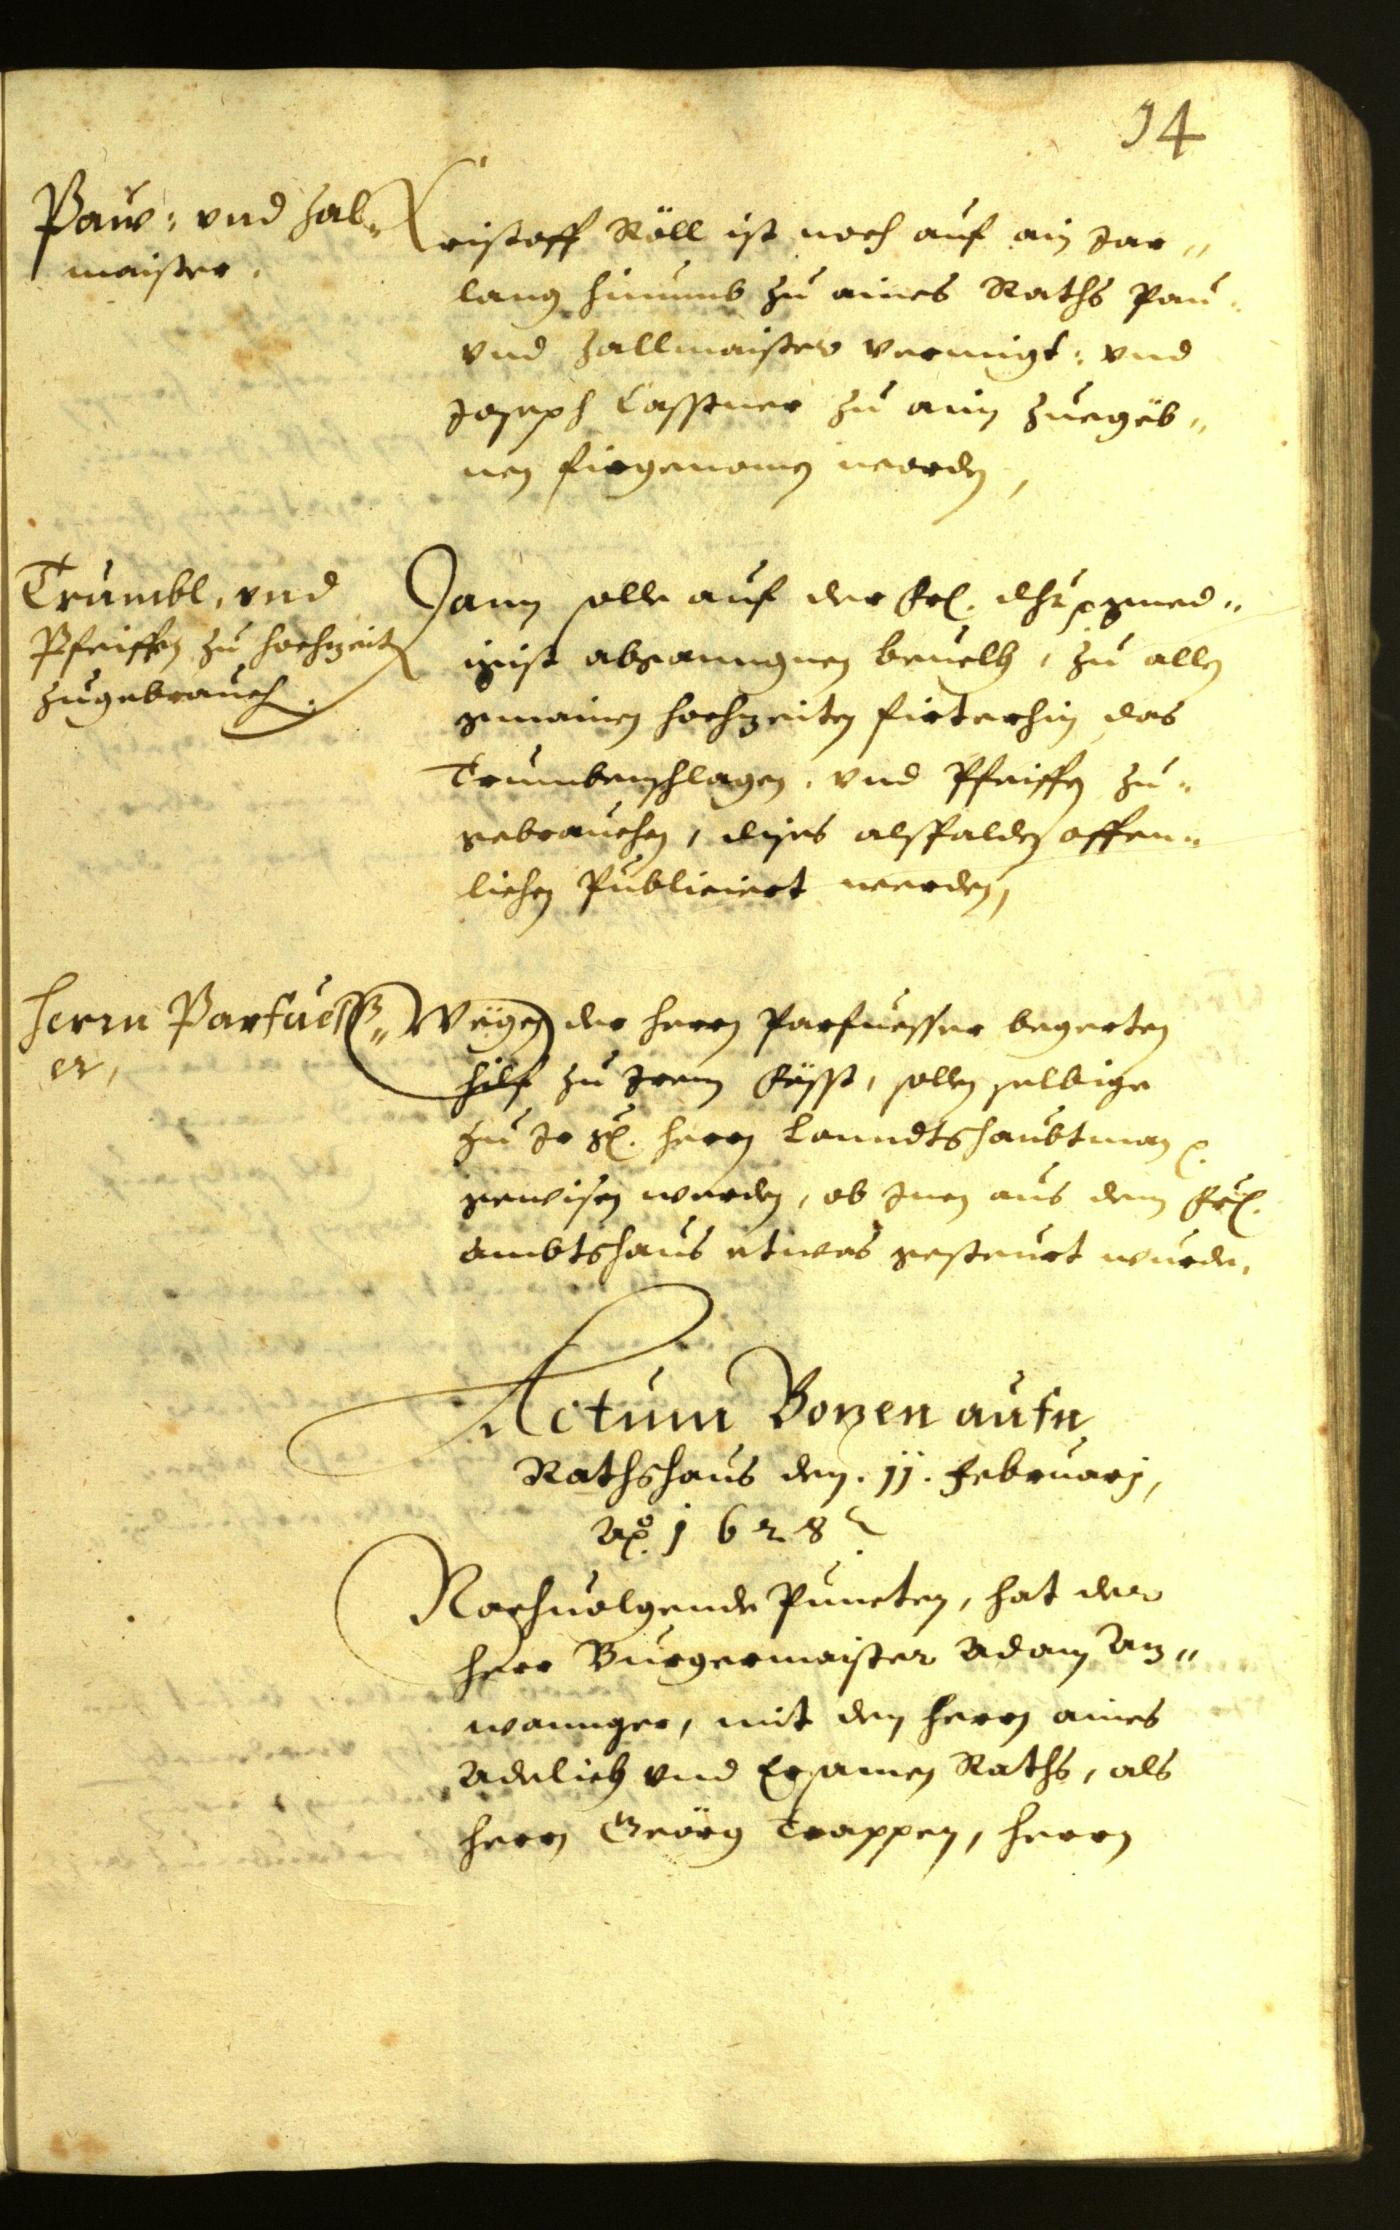 14
Paw: vnd Zal„
maister.
Xristoff Röll ist noch auf ain Jar„
lang hinumb zu aines Raths Pau
vnd Zallmaister vernuegt: vnd
Joseph Casstner zu aim Zuegëb„
nen firgenomen worden,
Trumbl, vnd
Pfeiffen zu hochzeiten
zugebrauch.
Dann solle auf der frl. dht. gened„
igist abganngnen beuelch, zu allen
gemainen hochzeiten firterhin das
Trumbenschlagen, vnd Pfeiffen zu„
gebrauchen, dises alsbalden offen„
lichen Publiciert werden,
Herrn Parfuess„
er,
Wëgen der herrn Parfuesser begerten
hilf zu Irem fësst, sollen selbige
zu Ir gl. herrn Lanndtshaubtman
gewisen werden, ob Inen aus dem frl.
Ambtshaus etwas gesteurt wurde.
Actum Bozen aufn
Rathshaus den. 11. Februarj,
Ao. 1628
Nachuolgende Puncten, hat der
herr Burgermaister Adam An„
wannger, mit den herrn aines
Adelich vnd Ersamen Raths, als
herrn Geörg Trappen, herrn